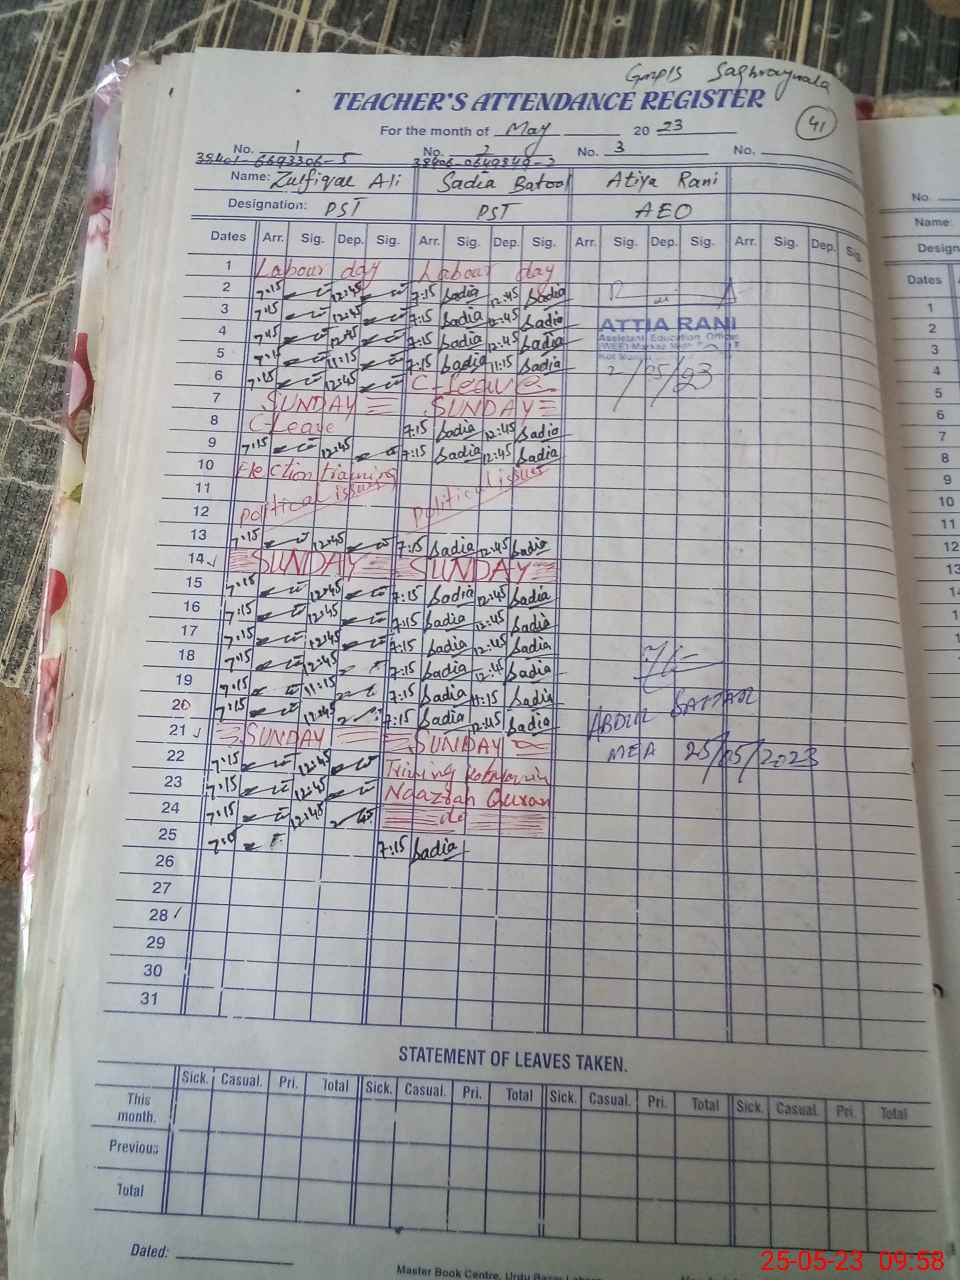 GMPIS Saghraywala
TEACHER'S ATTENDANCE REGISTER
41
For the month of May 20 23
No. 1 No. 2 No. 3 No.
38401-6693306-5
Name: Zulfiqar Ali Sadia Batool Atiya Rani
Designation: PST PST AEO
Dates Arr. Sig. Dep. Sig. Arr. Sig. Dep. Sig. Arr. Sig. Dep. Sig. Arr. Sig. Dep. Sig.
1 Labour day Labour day
2 7:15 12:45 7:15 Sadia 12:45 Sadia
3 7:15 12:45 7:15 Sadia 12:45 Sadia
4 7:15 12:45 7:15 Sadia 12:45 Sadia
ATTIA RANI
Assistant Education Officer
5 7:15 11:15 7:15 Sadia 11:15 Sadia
6 7:15 12:45 C-Leave 2/05/23
7 SUNDAY SUNDAY
8 C-Leave 7:15 Sadia 12:45 Sadia
9 7:15 12:45 7:15 Sadia 12:45 Sadia
10 Election training
11 political issues political issues
12
13 7:15 12:45 7:15 Sadia 12:45 Sadia
14 ✓ SUNDAY SUNDAY
15 7:15 12:45 7:15 Sadia 12:45 Sadia
16 7:15 12:45 7:15 Sadia 12:45 Sadia
17 7:15 12:45 7:15 Sadia 12:45 Sadia
18 7:15 12:45 7:15 Sadia 12:45 Sadia
19 7:15 11:15 7:15 Sadia 11:15 Sadia
20 7:15 12:45 7:15 Sadia 12:45 Sadia
ABDUL SATTAR
21 ✓ SUNDAY SUNDAY
MEA 25/05/2023
22 7:15 12:45
23 7:15 12:45 Naazrah Quran
24 7:15 12:45 do
25 7:15 7:15 Sadia
26
27
28 ✓
29
30
31
STATEMENT OF LEAVES TAKEN.
Sick. Casual. Pri. Total Sick. Casual. Pri. Total Sick. Casual. Pri. Total Sick. Casual. Pri. Total
This month.
Previous
Total
Dated:
Master Book Centre, Urdu Bazar
No.
Name:
Design
Dates
1
2
3
4
5
6
7
8
9
10
11
12
13
14
15
25-05-23 09:58